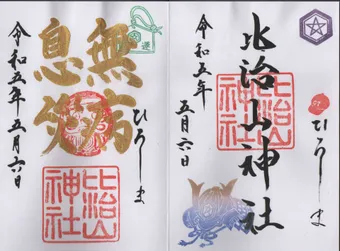 ひろしま
比治山神社
比治山
神社
令和五年
五月六日
ひろしま
無病
息災
比治山
神社
令和五年五月六日